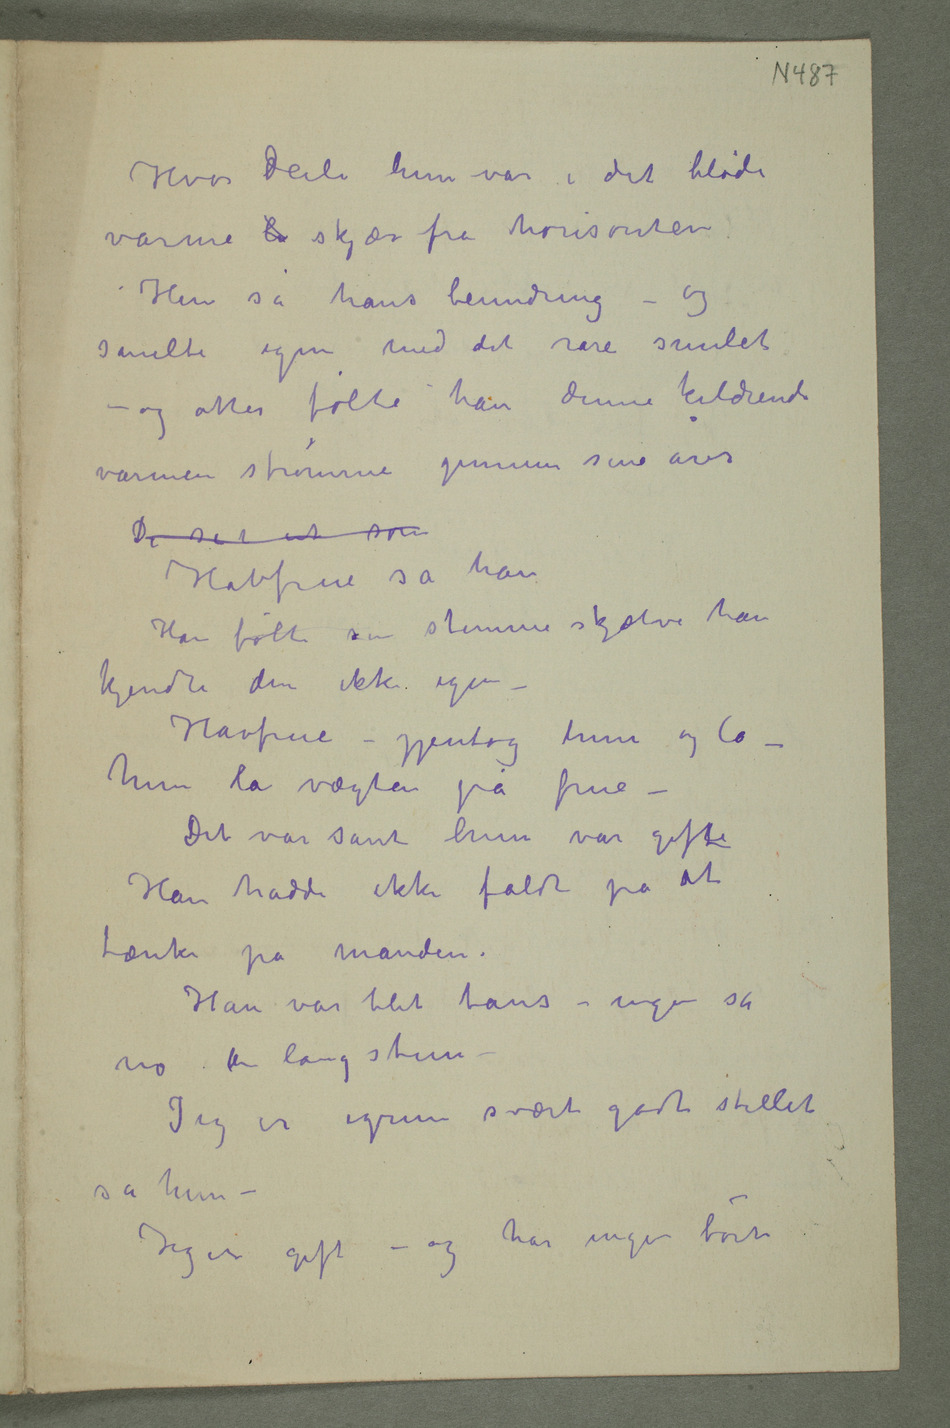 N487
Hvor deili hun var i det bløde
varme skjær fra horisonten
Hun så hans beundring – og
smilte igen med det rare smilet
– og atter følte han denne kildrende
varmen strømme gennem sine årer
De set ut som
Havfrue sa han
Han følte sin stemme skjælve han
kjendte den ikke igen –
Havfrue – gjentog hun og lo –
hun la vægten på frue –
Det var sant hun var gifte
Han hadde ikke faldt på at
tænke på manden.
Han var blet taus – ingen sa
no en lang stun –
Jeg er igrunn svært godt stillet
sa hun –
Jeg er gift – og har ingen børn